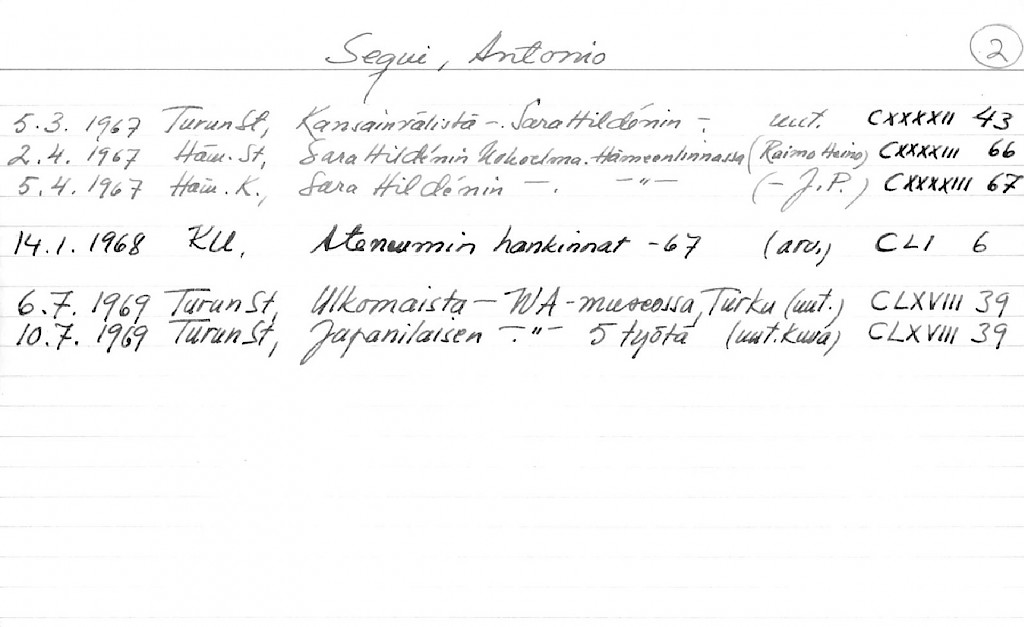 Segui, Antonio 2
5.3. 1967 Turun St, Kansainvälistä - Sara Hildénin - uut. CXXXXII 43
2.4. 1967 Häm. St, Sara Hildénin kokoelma Hämeenlinnassa (Raimo Heino) CXXXXIII 66
5.4. 1967 Häm. K., Sara Hildénin -. -"- (- J.P.) CXXXXIII 67
14.1. 1968 KU, Ateneumin hankinnat -67 (arv.) CLI 6
6.7. 1969 Turun St, Ulkomaista - WA-museossa, Turku (uut.) CLXVIII 39
10.7. 1969 Turun St, Japanilaisen -"- 5 työtä (uut. kuva) CLXVIII 39